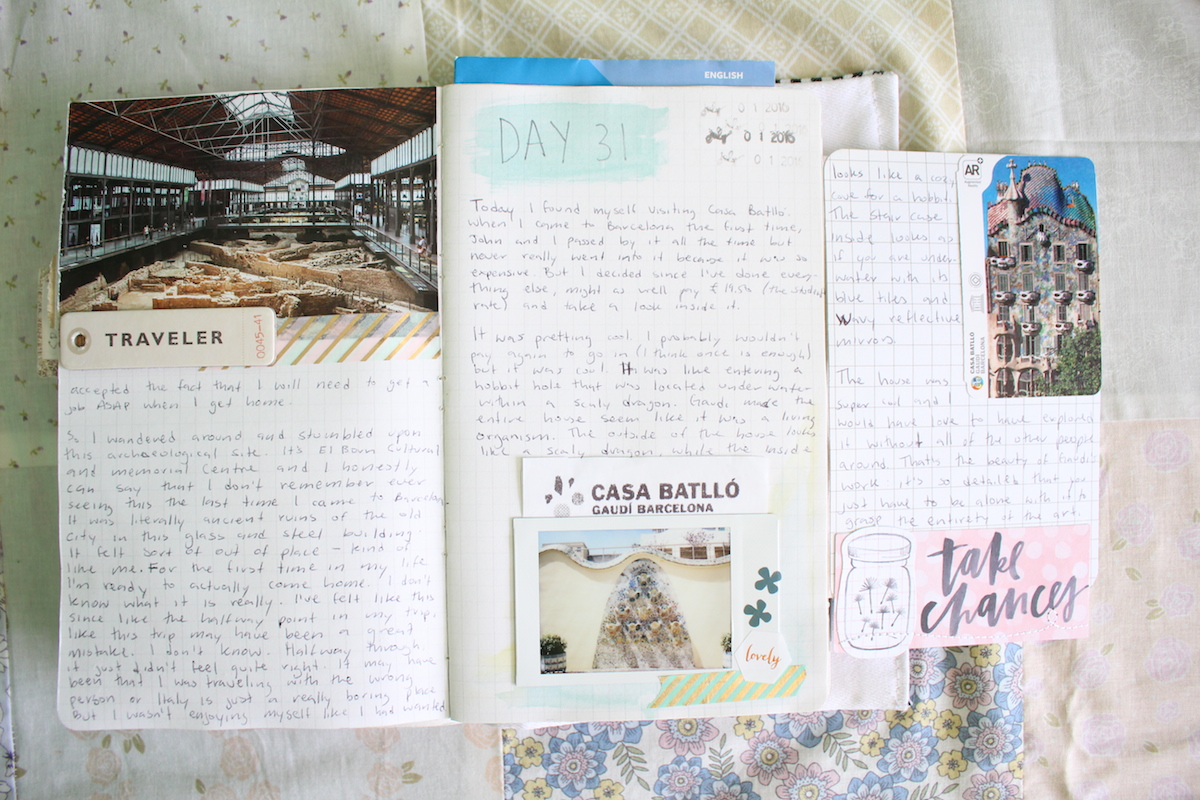 TRAVELER
0045-41
accepted the fact that I will need to get a
job ASAP when I get home.
So I wandered around and stumbled upon
this archaeological site. It's El Born Cultural
and memorial Centre and I honestly
can say that I don't remember ever
seeing this the last time I came to
It was literally ancient ruins of the old
City in this glass and steel building
It felt sort of out of place - kind of
like me. For the first time in my life
I'm ready to actually come home. I don't
know what it is really. I've felt like this
since like the halfway point in my trip,
like this trip may have been a great
mistake. I don't know. Halfway through,
it just didn't feel quite right. It may have
been that I was traveling with the wrong
person or Italy is just a really boring place
But I wasn't enjoying myself like I had wanted
ENGLISH
DAY 31
0 1 2016
0 1 2016
0 1 2016
Today, I found myself visiting Casa Batlló.
When I came to Barcelona the first time,
John and I passed by it all the time but
never really went into it because it was so
expensive. But I decided since I've done every-
thing else, might as well pay (the student
rate) and take a look inside it.
It was pretting cool. I probably wouldn't
pay again to go in (I think once is enough)
but it was cool. It was like entering a
hobbit hole that was located under water
within a scaly dragon. Gaudi made the
entire house seem like it was a living
organism. The outside of the house looks
like a scaly dragon, while the inside
CASA BATLLÓ
GAUDÍ BARCELONA
lovely
looks like a cozy
cave for a hobbit.
The stair case
inside looks as
if you are under-
water with its
blue tiles and
wavy reflective
mirrors.
The house was
super cool and I
would have love to have explored
it without all of the other people
around. Thats the beauty of Gaudi's
work, it's so detailed that you
just have to be alone with it to
grasp the entirety of the art.
AR+
CASA BATLLÓ
GAUDÍ
BARCELONA
take
chances